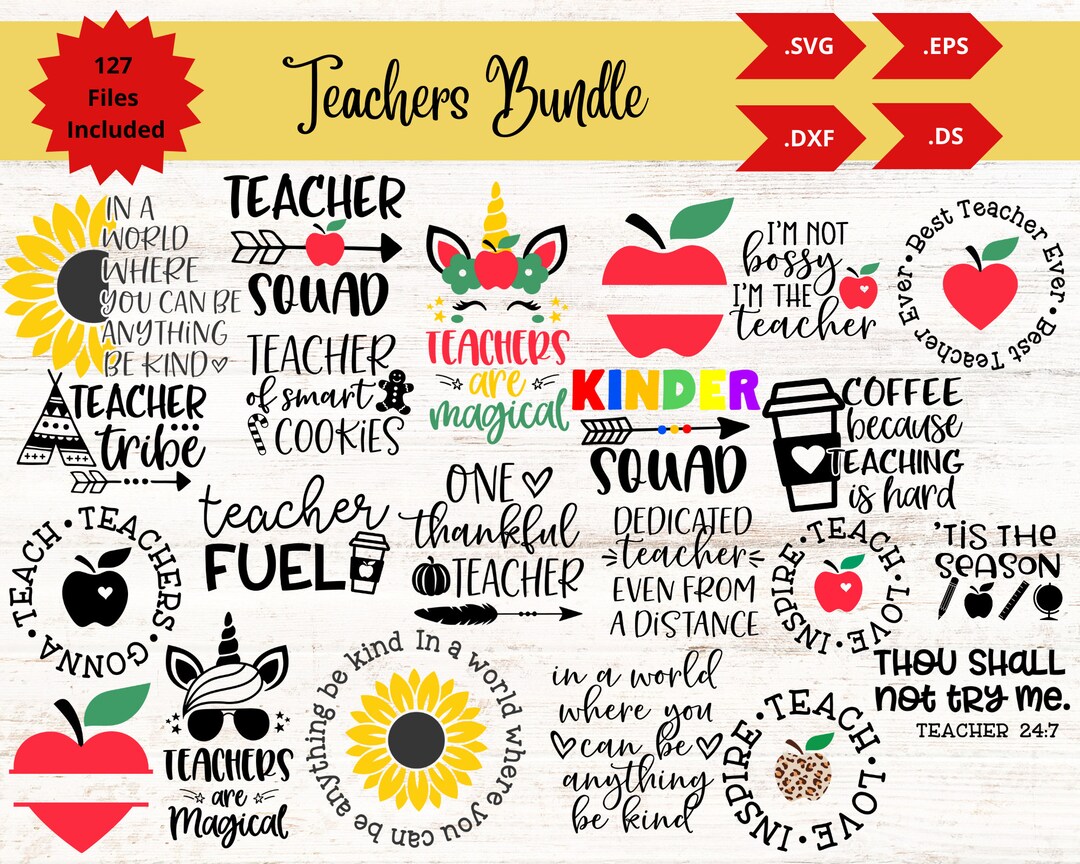 127
Files
Included
Teachers Bundle
.SVG
.EPS
.DXF
.DS
IN A
WORLD
WHERE
YOU CAN BE
ANYTHING
BE KIND
TEACHER
SQUAD
TEACHERS
are
magical
I'M NOT
bossy
I'M THE
teacher
Best Teacher Ever • Best Teacher Ever •
TEACHER
tribe
TEACHER
of smart
COOKIES
KINDER
SQUAD
COFFEE
because
TEACHING
is hard
TEACHERS • GONNA • TEACH •
teacher
FUEL
ONE
thankful
TEACHER
DEDICATED
teacher
EVEN FROM
A DISTANCE
TEACH • LOVE • INSPIRE •
'TIS THE
SEASON
TEACHERS
are
Magical
In a world where you can be anything be kind
in a world
where you
can be
anything
be kind
TEACH • LOVE • INSPIRE •
THOU SHALL
NOT TRY ME.
TEACHER 24:7